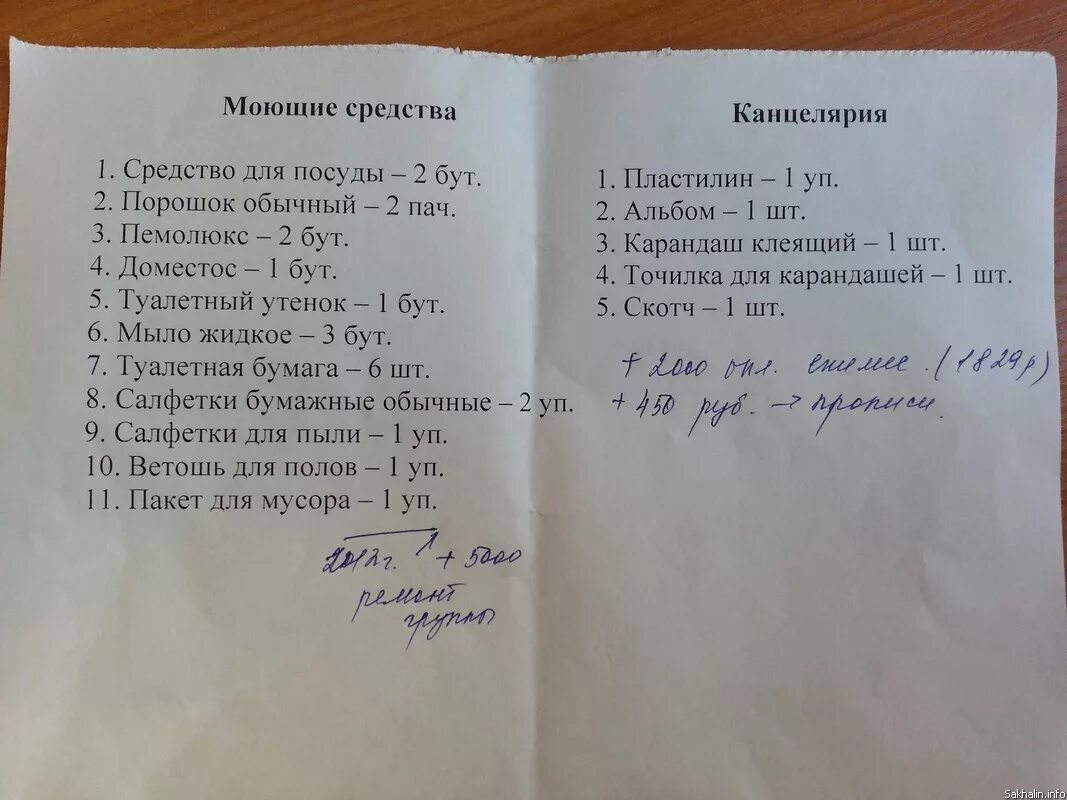 Моющие средства
1. Средство для посуды – 2 бут.
2. Порошок обычный – 2 пач.
3. Пемолюкс – 2 бут.
4. Доместос – 1 бут.
5. Туалетный утенок – 1 бут.
6. Мыло жидкое – 3 бут.
7. Туалетная бумага – 6 шт.
8. Салфетки бумажные обычные – 2 уп.
9. Салфетки для пыли – 1 уп.
10. Ветошь для полов – 1 уп.
11. Пакет для мусора – 1 уп.
2012г. + 5000
ремонт
группы
Канцелярия
1. Пластилин – 1 уп.
2. Альбом – 1 шт.
3. Карандаш клеящий – 1 шт.
4. Точилка для карандашей – 1 шт.
5. Скотч – 1 шт.
+ 2000 опл. ежемес. (1829р)
+ 450 руб. → прописи.
Sakhalin.info